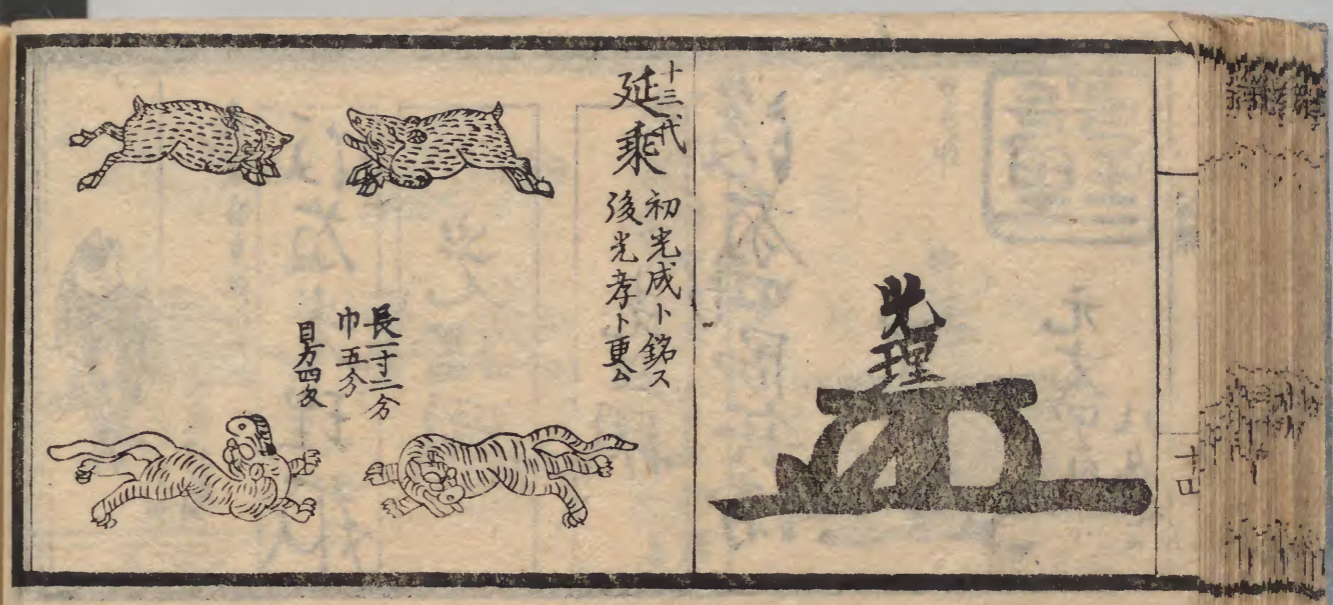 十四
光理
十三代
延乗
初光成ト銘ス
後光孝ト更ム
長一寸二分
巾五分
目方四匁